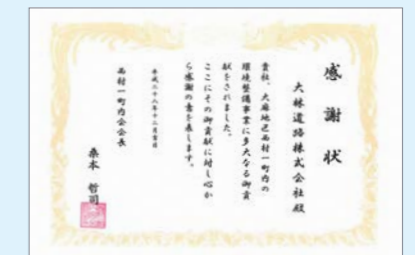 感謝状
大林道路株式会社殿
貴社、大麻地区西村一町内の
環境整備事業に多大なる御貢
献をされました。
ここにその御貢献に対し心か
ら感謝の意を表します。
平成二十八年十二月吉日
西村一町内会会長
桑本 哲司